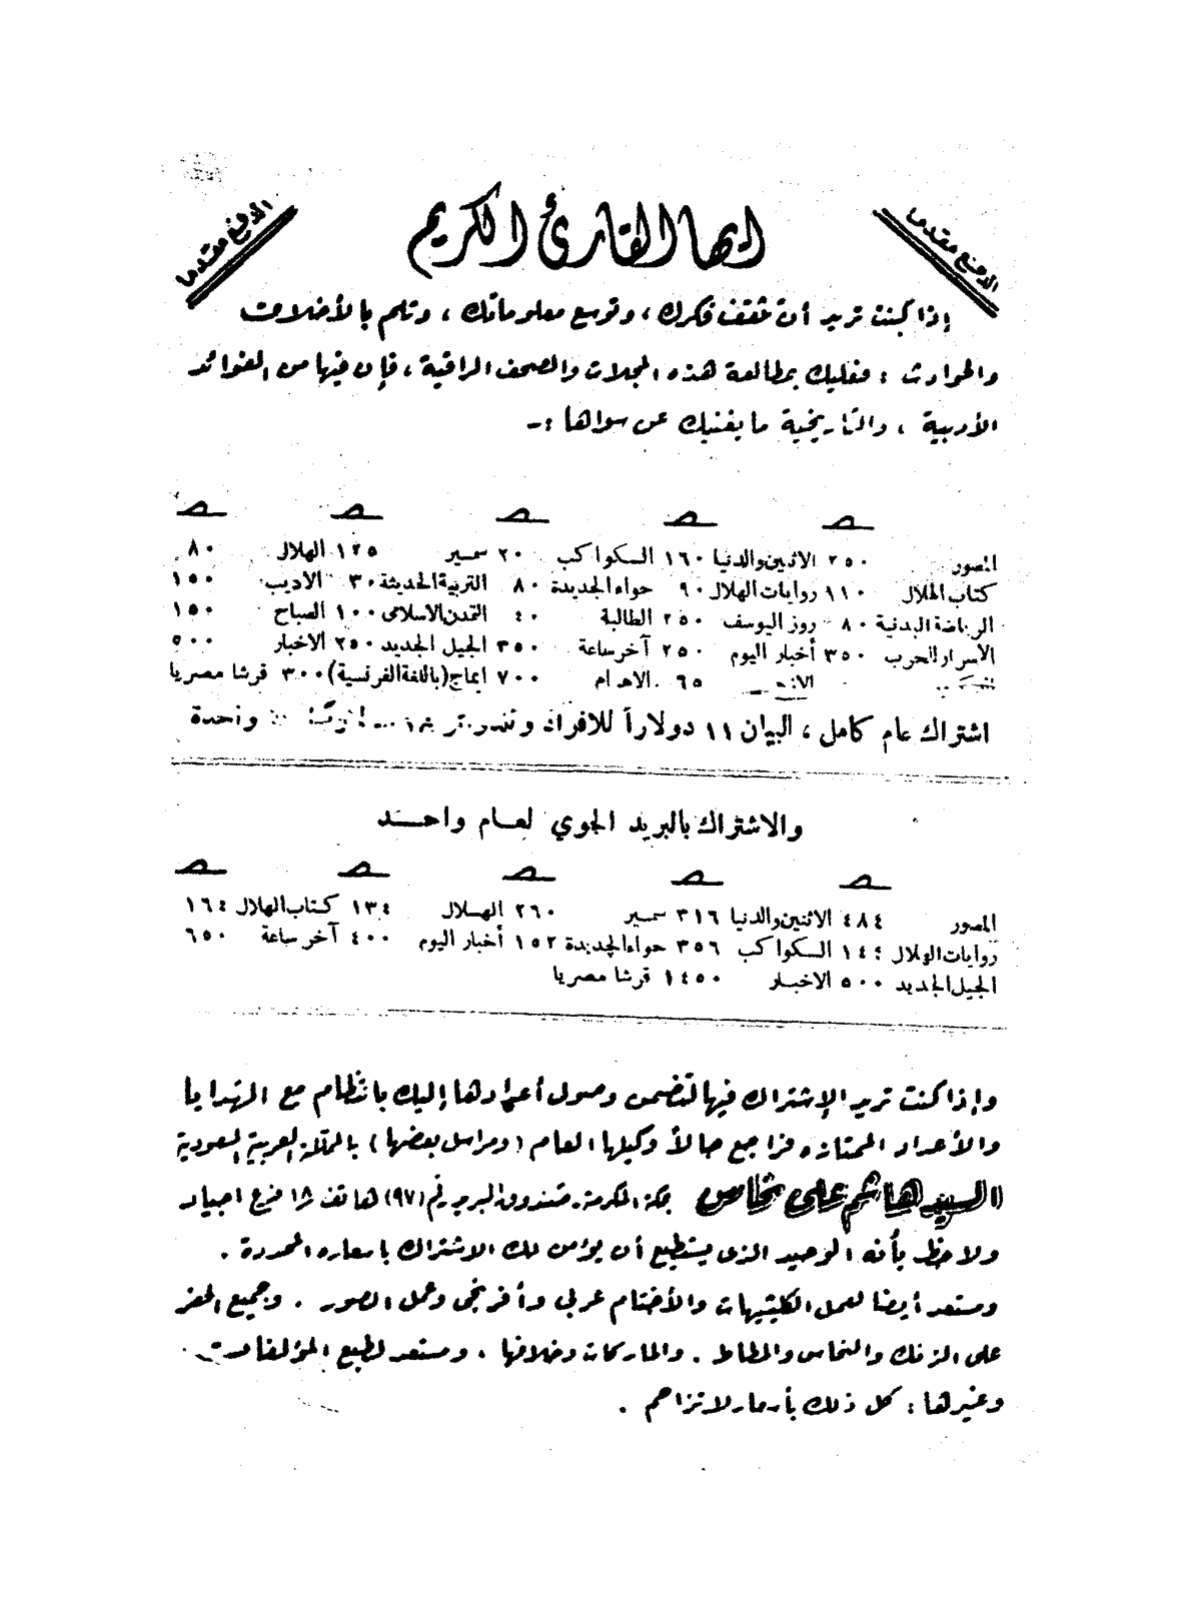 الدفع مقدما
ايها القارئ الكريم
الدفع مقدما
إذا كنت تريد أن تثقف فكرك، وتوسع معلوماتك، وتلم بالأخلاق
والحوادث : فعليك بمطالعة هذه المجلات والصحف الراقية، فإن فيها من الفوائد
الأدبية ، والتاريخية ما يغنيك عن سواها :-
صـ صـ صـ صـ صـ
المصور ٢٥٠ الاثنين والدنيا ١٦٠ السكواكب ٢٠ سمـير ١٢٥ الهلال ٨٠
كتاب الهلال ١١٠ روايات الهلال ٩٠ حواء الجديدة ٨٠ التربية الحديثة ٣٠ الاديب ١٥٠
الرياضة البدنية ٨٠ روز اليوسف ٢٥٠ الطالبة ٤٠ التمدن الاسلامى ١٠٠ الصباح ١٥٠
الاسرار الحرب ٣٥٠ أخبار اليوم ٢٥٠ آخر ساعة ٣٥٠ الجيل الجديد ٢٥٠ الاخبار ٥٠٠
٦٥ الاهرام ٧٠٠ ايماج (باللغة الفرنسية) ٣٠٠ قرشا مصريا
اشتراك عام كامل ، البيان ١١ دولاراً للافراد واحدة
والاشتراك بالبريد الجوي لعـام واحـد
صـ صـ صـ صـ صـ
المصور ٤٨٤ الاثنين والدنيا ٣١٦ سمـير ٢٦٠ الهـلال ١٣٤ كتاب الهلال ١٦٤
روايات الهلال ١٤٤ السكواكب ٣٥٦ حواء الجديدة ١٥٢ أخبار اليوم ٤٠٠ آخر ساعة ٦٥٠
الجيل الجديد ٥٠٠ الاخبـار ١٤٥٠ قرشا مصريا
وإذا كنت تريد الإشتراك فيها لتضمن وصول أعدادها إليك بانتظام مع الهدايا
والأعداد الممتازه فراجع حالاً وكيلها العام (ومراسل بعضها) بالمملكة العربية السعودية
(السيد هاشم على نحاس بمكة المكرمة - صندوق البريد رقم (٩٧) هاتف ١٨ فرع اجياد
ولاحظ بأنه الوحيد الذى يستطيع أن يؤمن لك الاشتراك باسعاره المحددة .
ومستعد أيضا لعمل الكليشيهات والأختام عربي وأفرنجى وعمل الصور . وجميع الحفر
على الزنك والنحاس والمطاط . والماركات وخلافها ، ومستعد لطبع المؤلفات
وغيرها : كل ذلك بأسعار لا تزاحم .